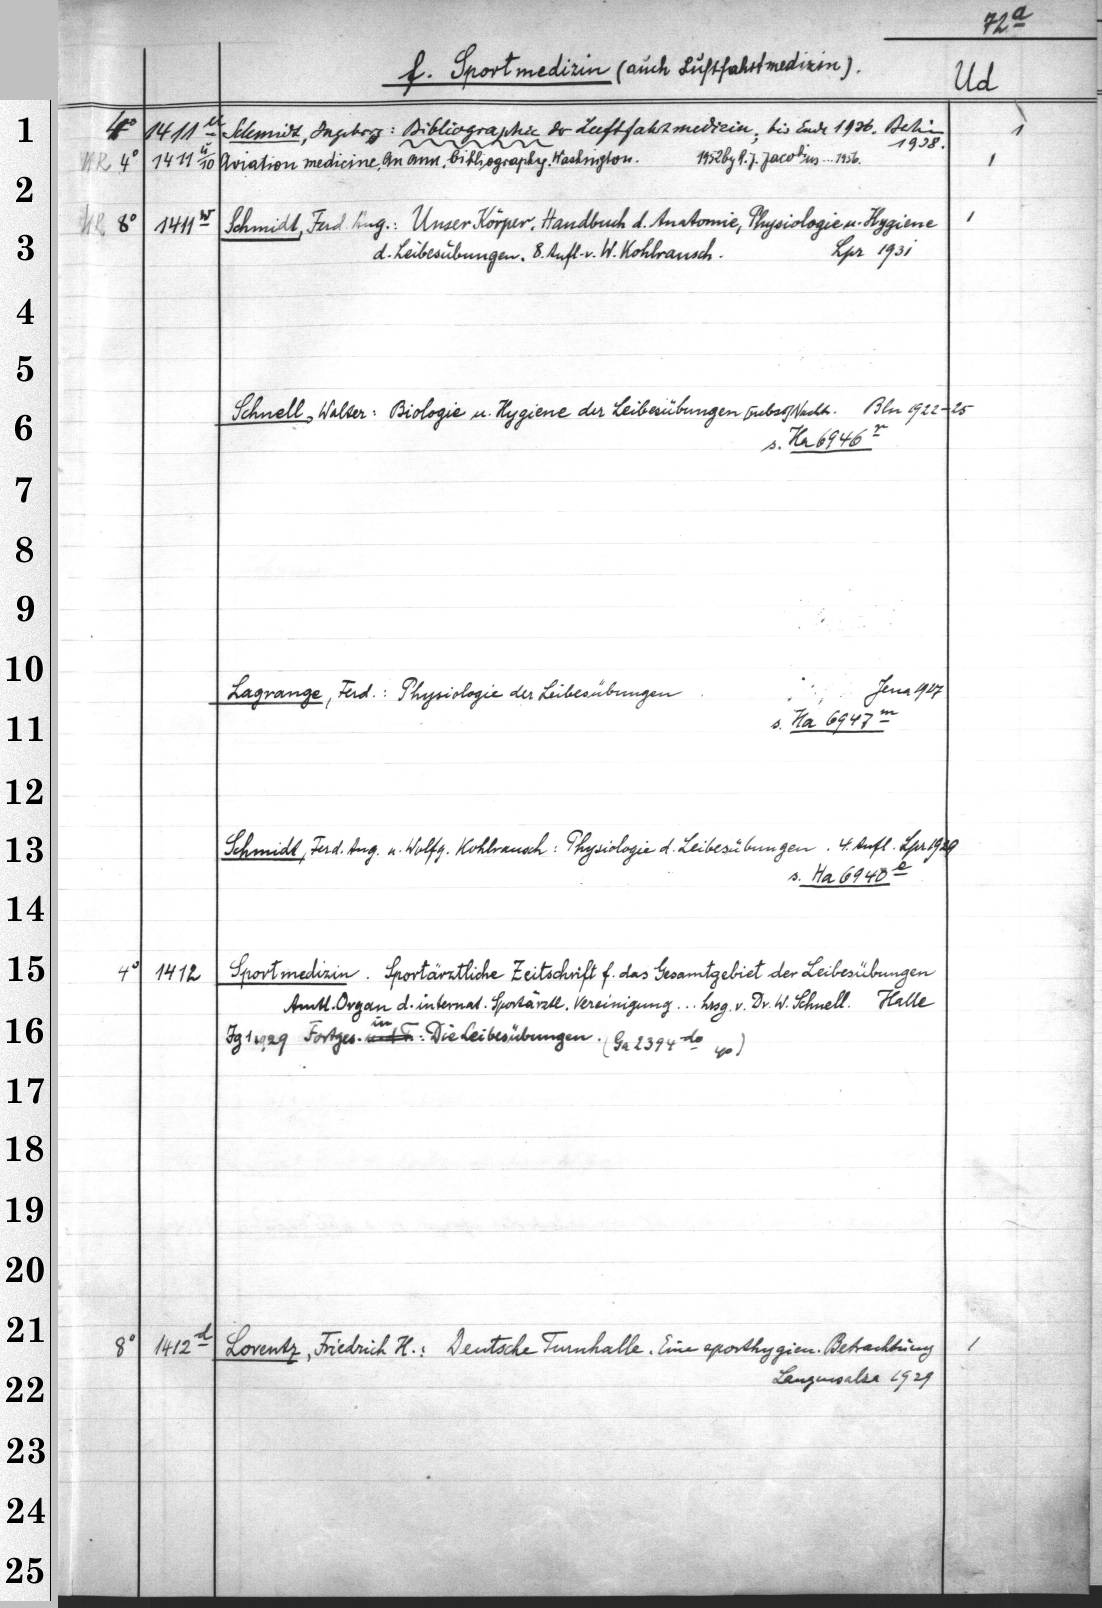 72a
f. Sportmedizin (auch Luftfahrtmedizin).
Ud
1 4° 1411 u Schmidt, Ingeborg: Bibliographie der Luftfahrtmedizin, bis Ende 1936. Berlin 1938. 1
HR 4° 1411 u/10 Aviation medicine. An ann. bibliography. Washington. 1952 by A. J. Jacobius ... 1956. 1
2
HR 8° 1411 w Schmidt, Ferd. Aug.: Unser Körper. Handbuch d. Anatomie, Physiologie u. Hygiene 1
3 d. Leibesübungen. 8. Aufl. v. W. Kohlrausch. Lpz 1931
4
5
Schnell, Walter: Biologie u. Hygiene der Leibesübungen Nachtr. Bln 1922-25
6 s. Ha 6946 n
7
8
9
10
Lagrange, Ferd.: Physiologie der Leibesübungen Jena 1927
11 s. Ha 6947 m
12
13 Schmidt, Ferd. Aug. u. Wolfg. Kohlrausch: Physiologie d. Leibesübungen. 4. Aufl. Lpz 1929
s. Ha 6940 e
14
15 4° 1412 Sportmedizin. Sportärztliche Zeitschrift f. das Gesamtgebiet der Leibesübungen
Amtl. Organ d. internat. Sportärztl. Vereinigung ... hrsg. v. Dr. W. Schnell. Halle
16 Jg 1 1929 Fortges. in: Die Leibesübungen. (Ga 2394 do 4°)
17
18
19
20
21 8° 1412 d Lorentz, Friedrich H.: Deutsche Turnhalle. Eine sporthygien. Betrachtung 1
22 Langensalza 1929
23
24
25